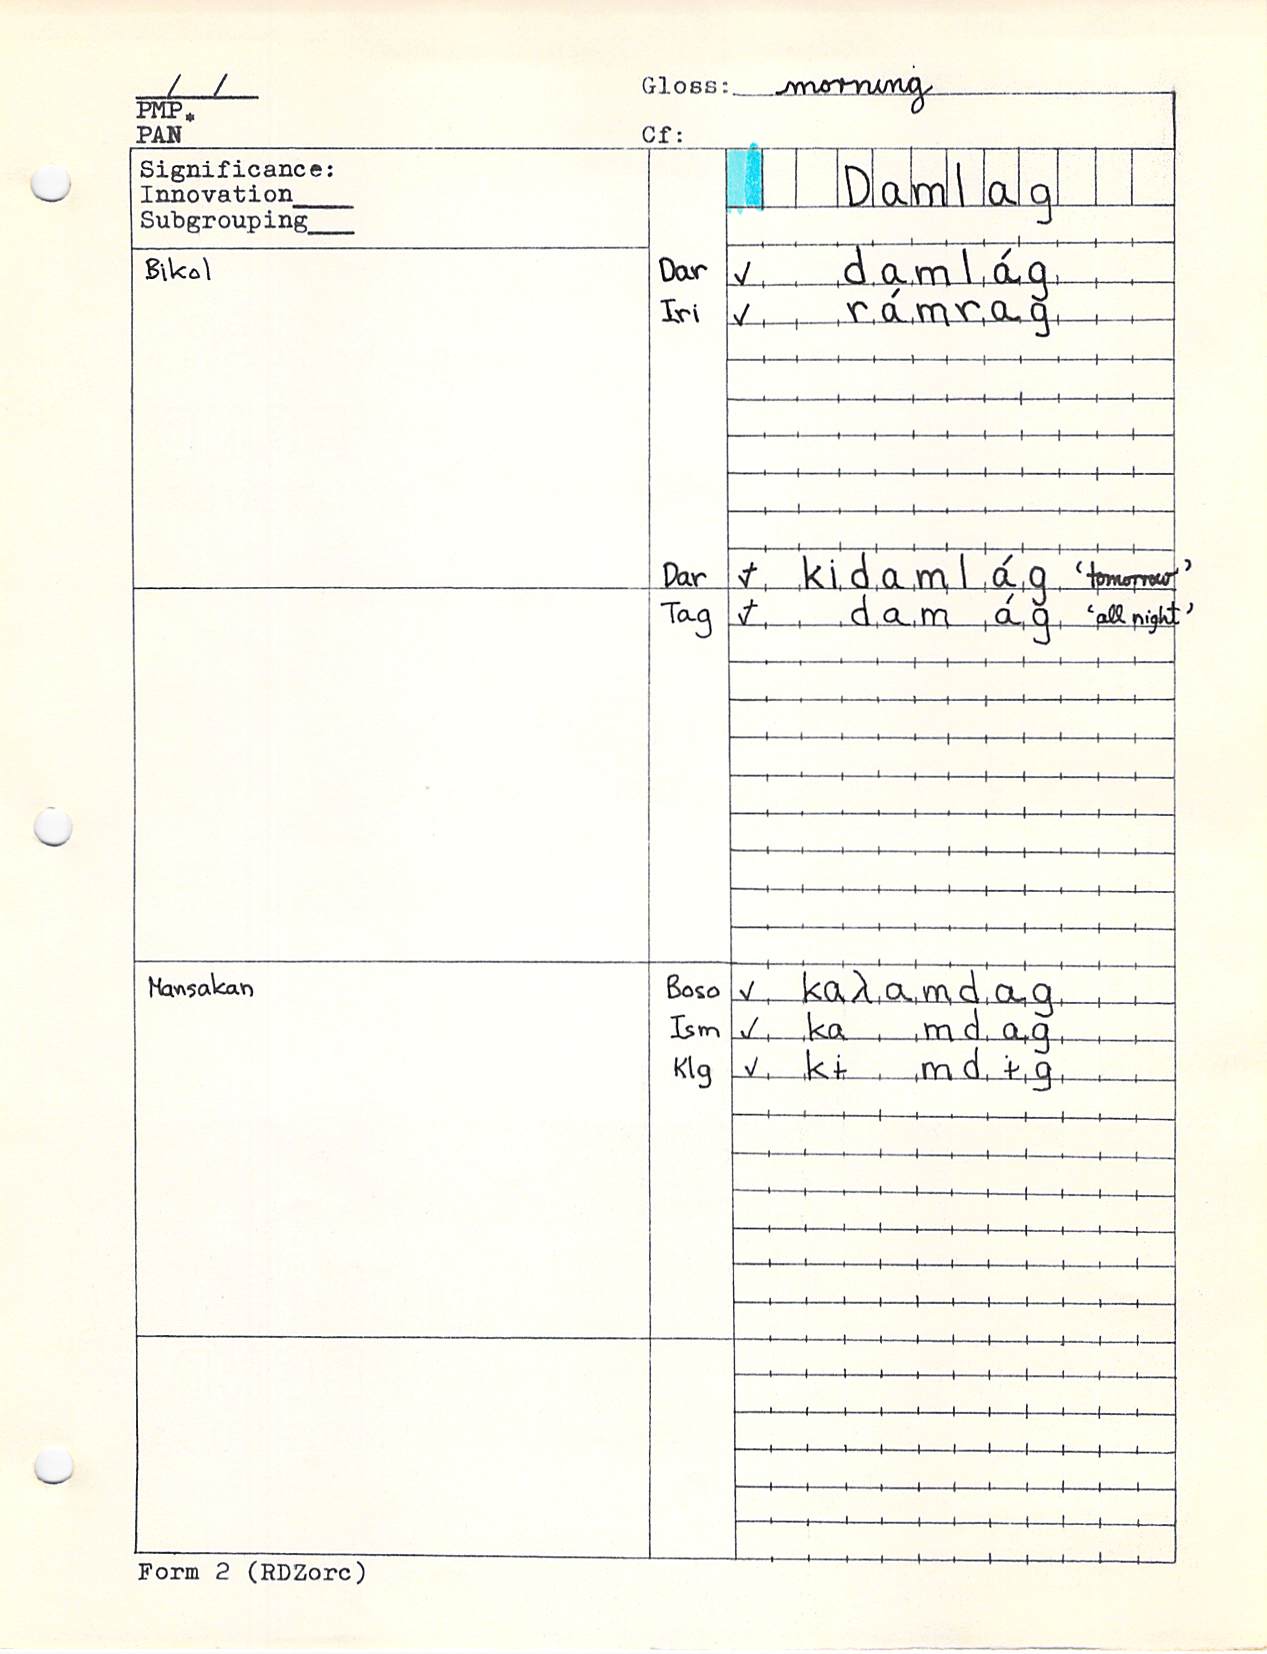 / /
Gloss: morning
PMP.
PAN
Cf:
Significance:
Innovation____
Subgrouping___
Damlag
Bikol
Dar ✓ damlág
Iri ✓ rámrag
Dar ✓ kidamlág 'tomorrow'
Tag ✓ dam ág 'all night'
Mansakan
Boso ✓ kaλamdag
Ism ✓ ka mdag
Klg ✓ kɨ mdɨg
Form 2 (RDZorc)